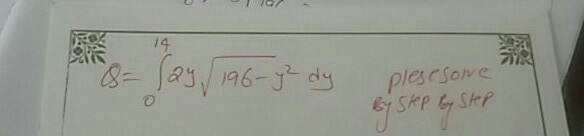 Q = ∫₀¹⁴ 2y √(196 - y²) dy
plese solve
By Step By Step